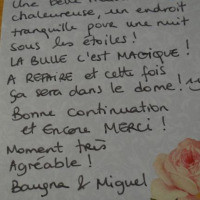 Une belle
chaleureuse, un endroit
tranquille pour une nuit
sous les étoiles !
LA BULLE c'est MAGIQUE !
A REFAIRE et cette fois
ça sera dans le dome !
Bonne continuation
et Encore MERCI !
Moment très
Agréable !
& Miguel